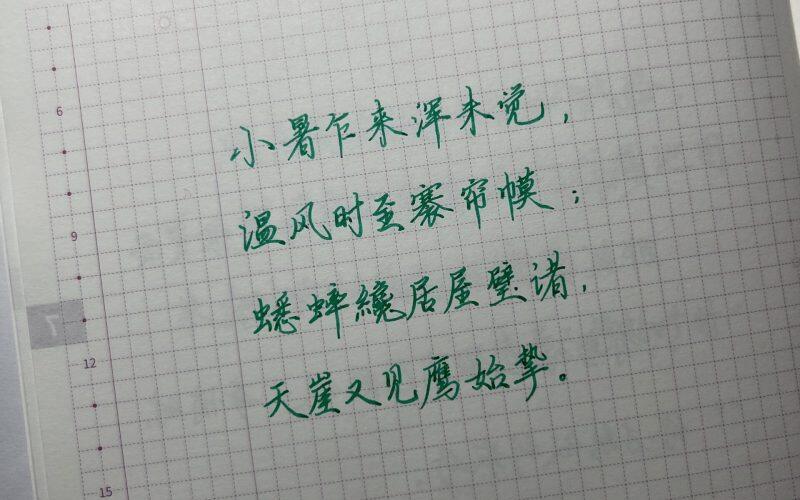 6
小暑乍来浑未觉，
9
温风时至褰帘幙；
蟋蟀纔居屋壁诸，
12
天崖又见鹰始挚。
15